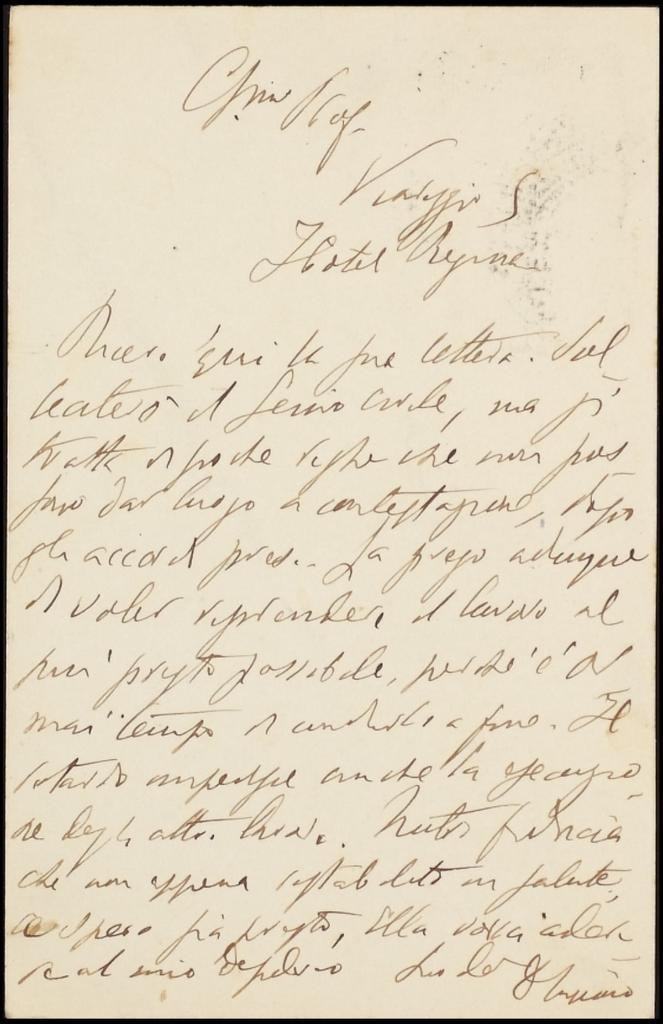 Chmo Prof.
Viareggio
Hotel Regina
Ricevo qui la sua lettera. Sul
teatro il Genio Civile, ma si
tratta di poche righe che non pos
sono dar luogo a contestazioni, dopo
gli accordi presi. La prego adunque
di voler riprendere il lavoro al
più presto possibile, perché è or
mai tempo di condurlo a fine. Il
ritardo impedisce anche la esecuzio
ne degli altri lavori. Nutro fiducia
che non appena ristabilito in salute,
e spero sia presto, Ella vorrà aderi
re al mio desiderio